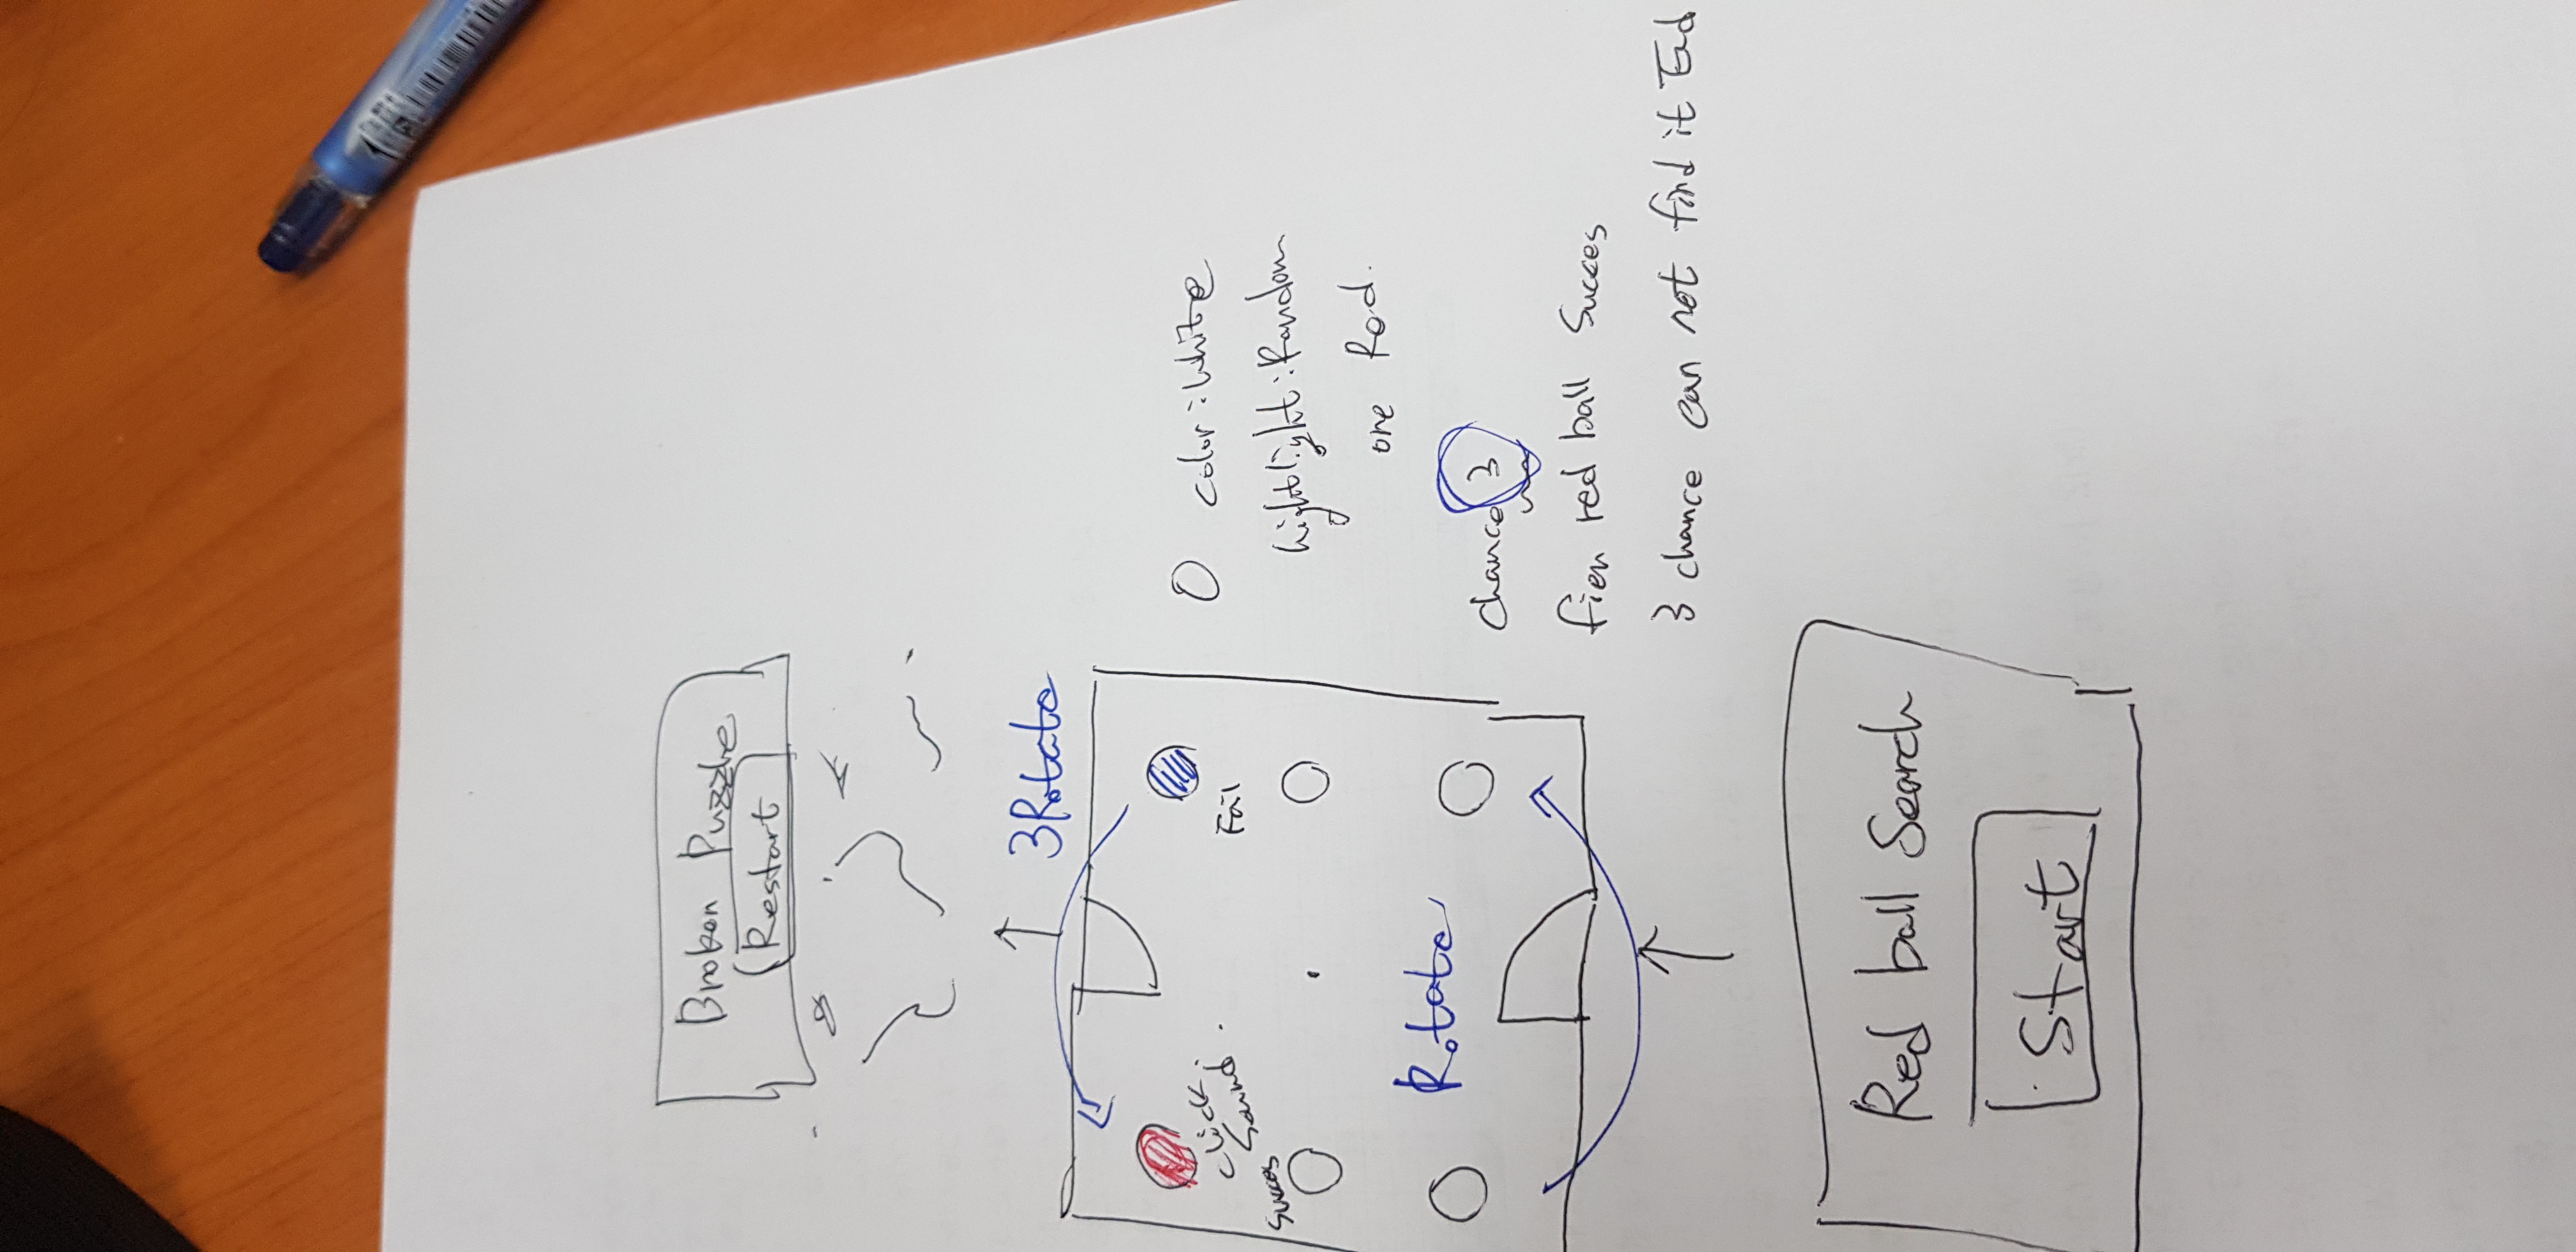 Broken Puzzle
Restart
3Rotate
click
Sound
Succes
Fail
Rotate
O color:white
hightlight:Random
one Red.
chance 3
fien red ball Succes
3 chance can not find it End
Red ball Search
Start